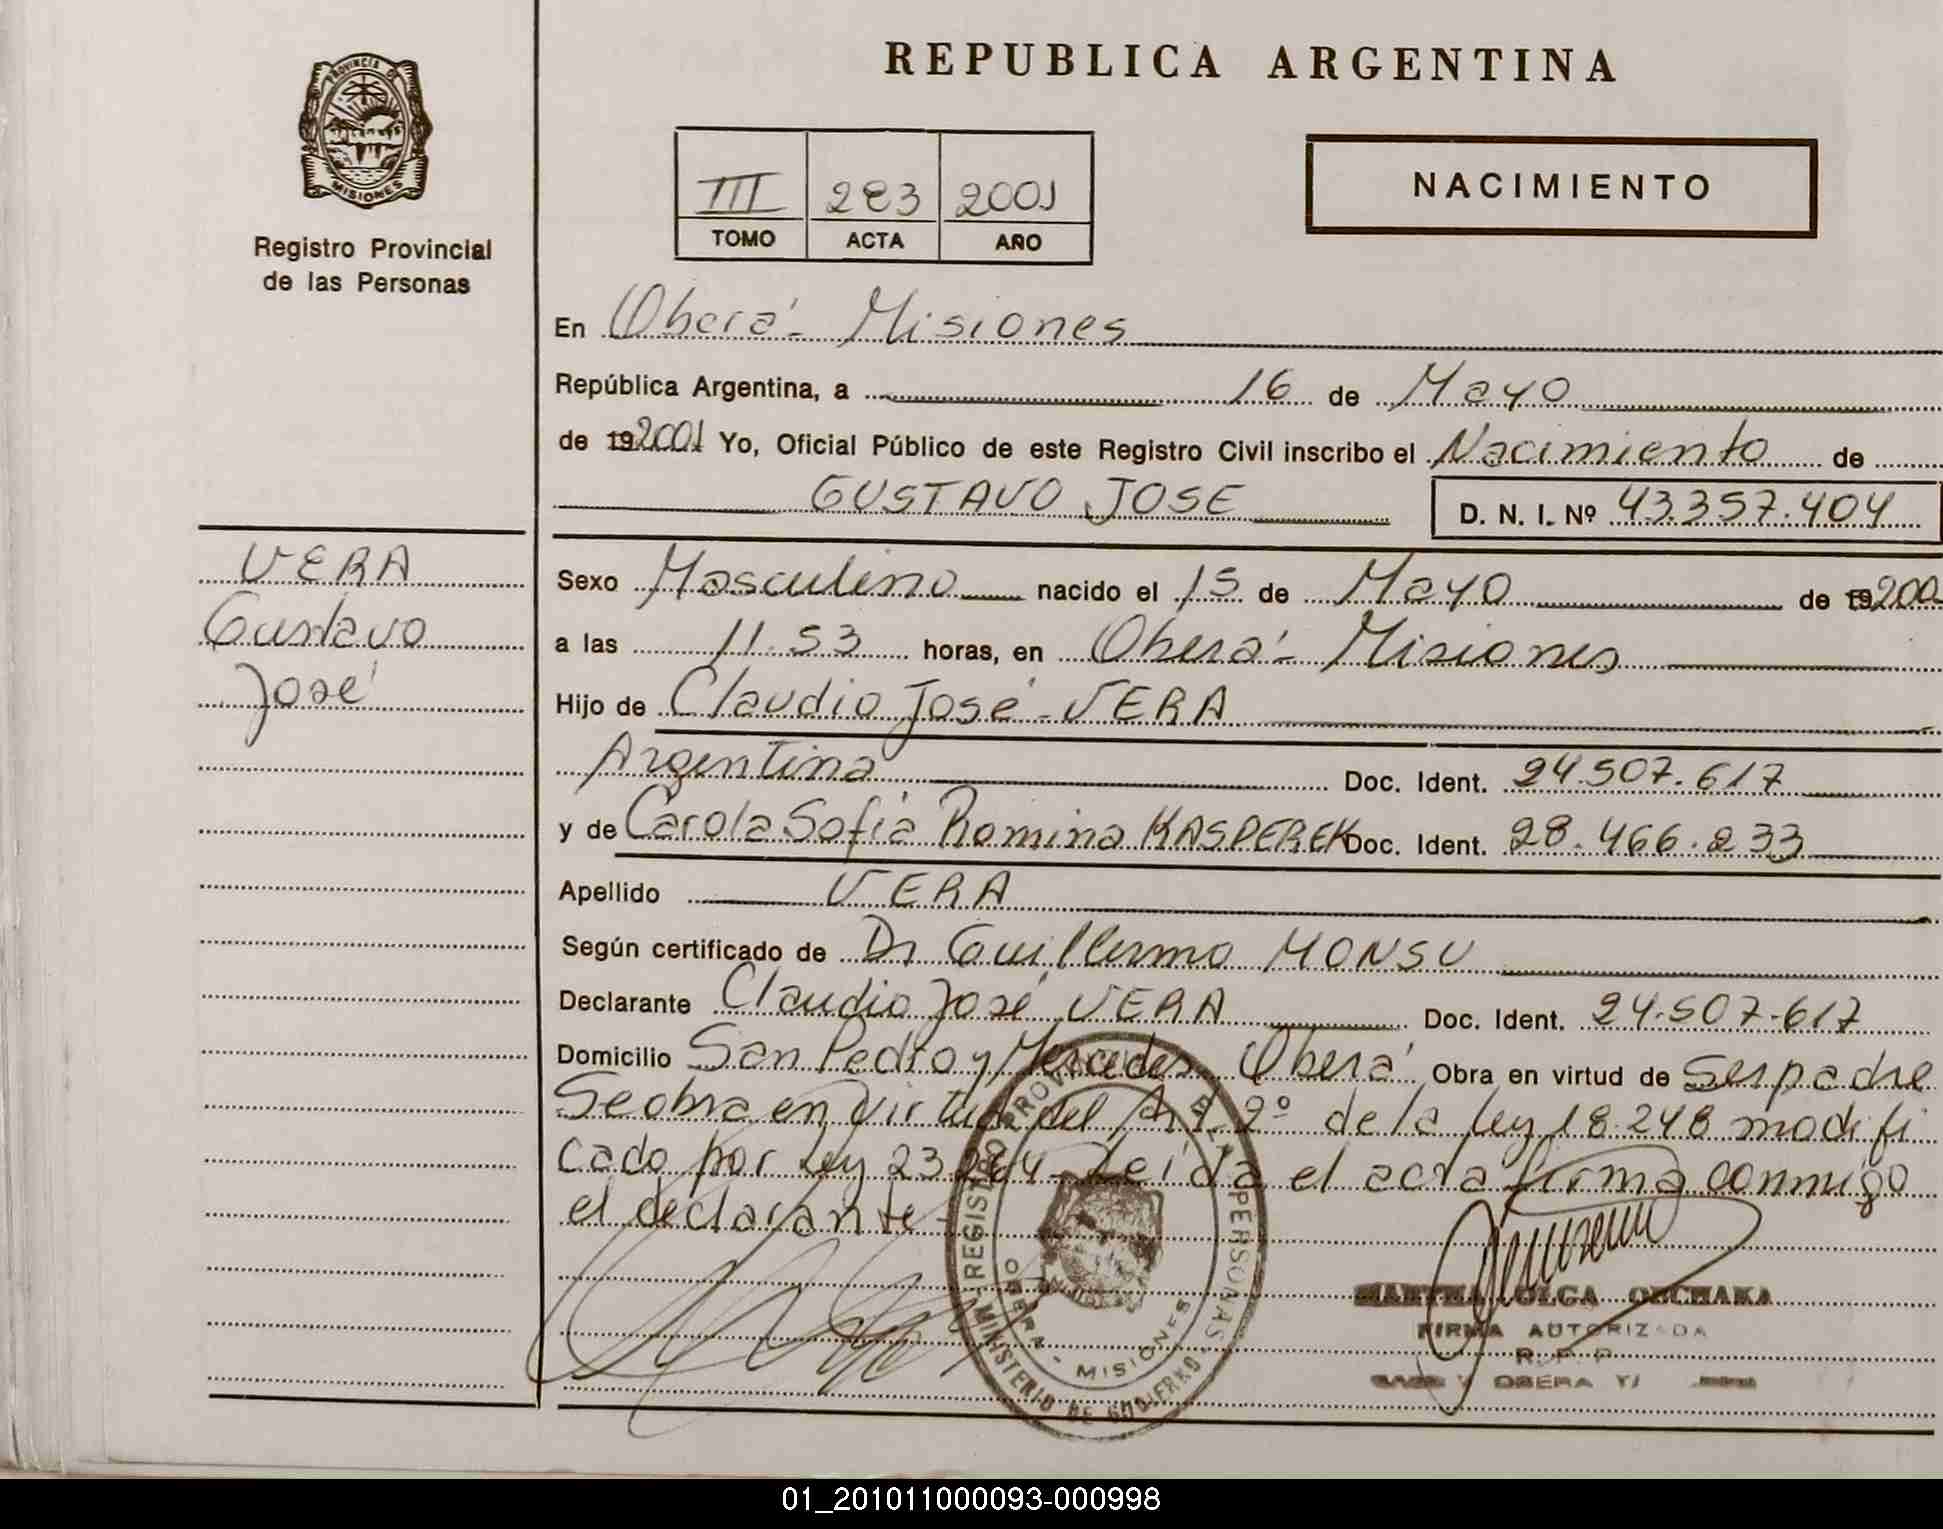 REPUBLICA ARGENTINA
PROVINCIA DE
MISIONES
Registro Provincial
de las Personas
III 283 2001
TOMO ACTA AÑO
NACIMIENTO
En Oberá - Misiones
República Argentina, a 16 de Mayo
de 192001 Yo, Oficial Público de este Registro Civil inscribo el Nacimiento de
GUSTAVO JOSE D. N. I. Nº 43.357.404
VERA
Gustavo
José
Sexo Masculino nacido el 15 de Mayo de 19200
a las 11.53 horas, en Oberá - Misiones
Hijo de Claudio José - VERA
Argentina Doc. Ident. 24.507.617
y de Carola Sofía Romina KASPEREK Doc. Ident. 28.466.233
Apellido VERA
Según certificado de Dr Guillermo MONSU
Declarante Claudio José VERA Doc. Ident. 24.507.617
Domicilio San Pedro y Mercedes Oberá Obra en virtud de Ser padre
Se obra en virtud del Art. 2º de la Ley 18.248 modifi
cado por Ley 23264 - Leída el acta firma conmigo
el declarante -
REGISTRO PROVINCIAL DE LAS PERSONAS
MINISTERIO DE GOBIERNO
OBERA - MISIONES
MARTHA OLGA
FIRMA AUTORIZADA
R. P. P.
OBERA
01_201011000093-000998